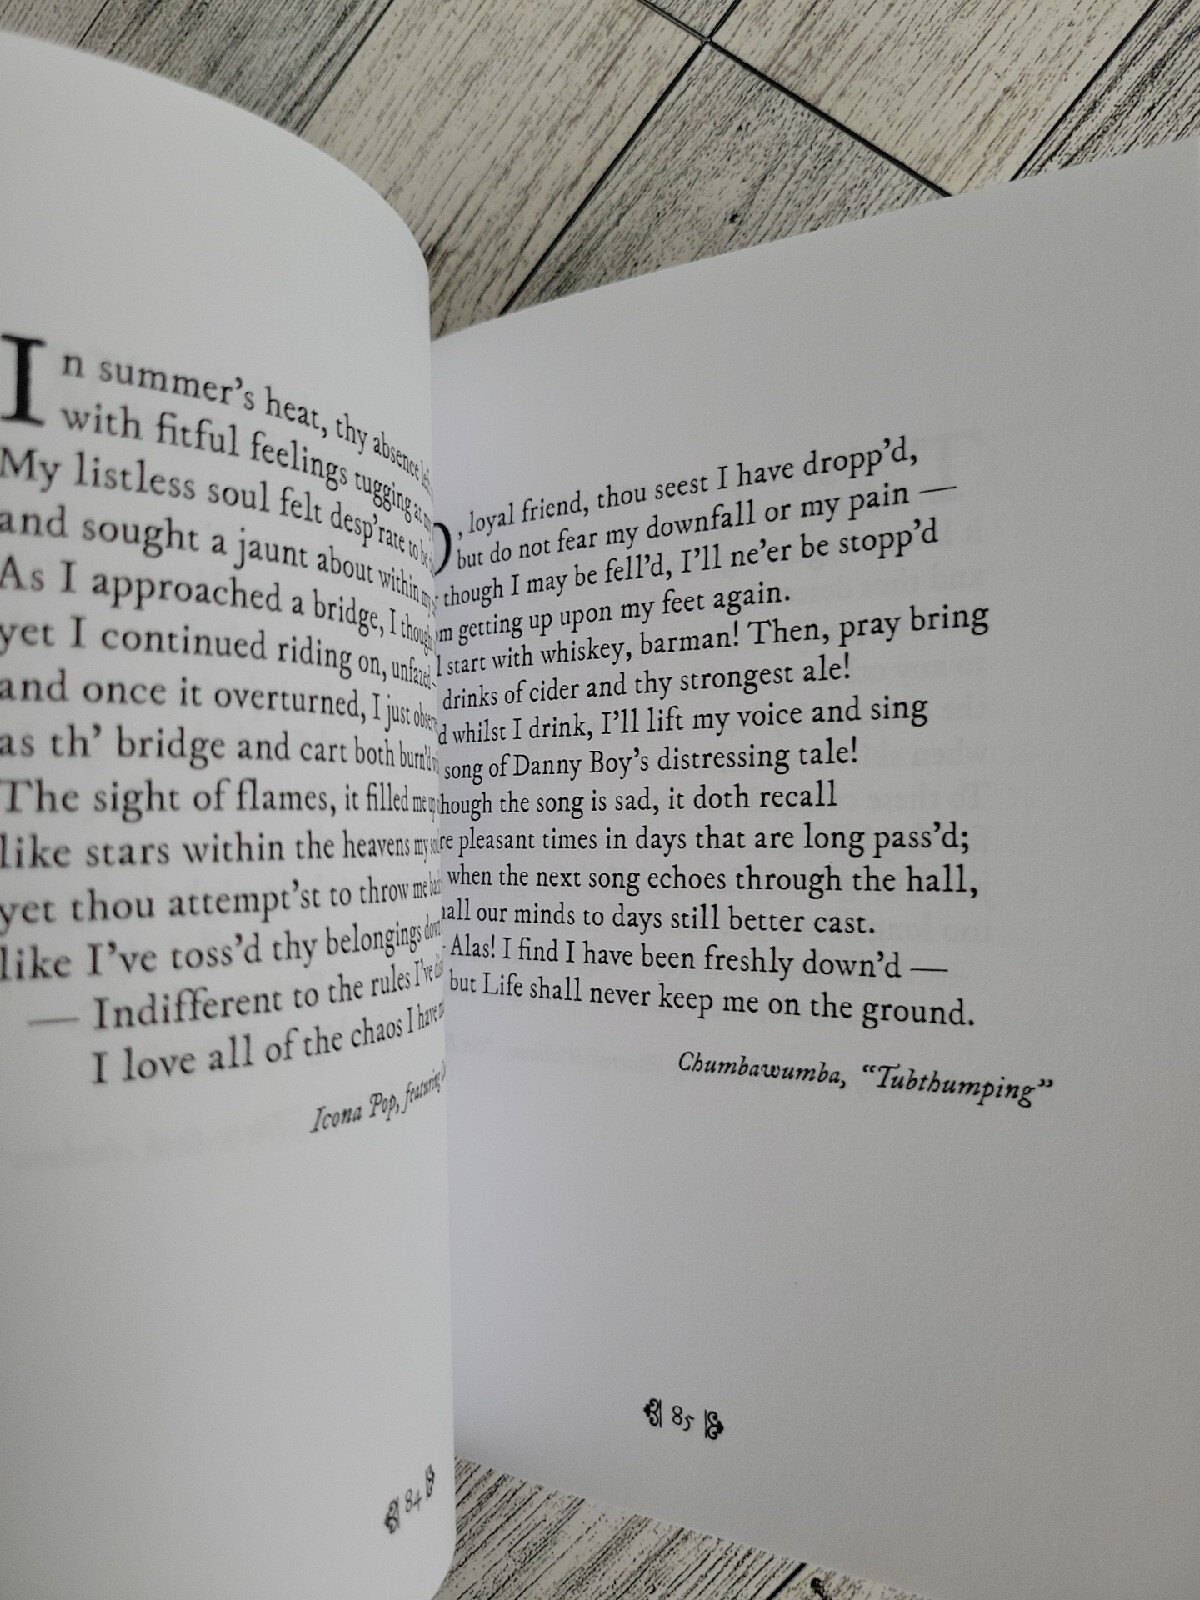 In summer's heat, thy absence
with fitful feelings tugging at
My listless soul felt desp'rate to
and sought a jaunt about within
As I approached a bridge, I
yet I continued riding on,
and once it overturned, I just
as th' bridge and cart both burn'd
The sight of flames, it filled me
like stars within the heavens my
yet thou attempt'st to throw me
like I've toss'd thy belongings
— Indifferent to the rules I've
I love all of the chaos I have
Icona Pop, featuring
84
O, loyal friend, thou seest I have dropp'd,
but do not fear my downfall or my pain —
though I may be fell'd, I'll ne'er be stopp'd
getting up upon my feet again.
start with whiskey, barman! Then, pray bring
drinks of cider and thy strongest ale!
whilst I drink, I'll lift my voice and sing
song of Danny Boy's distressing tale!
the song is sad, it doth recall
pleasant times in days that are long pass'd;
when the next song echoes through the hall,
our minds to days still better cast.
Alas! I find I have been freshly down'd —
but Life shall never keep me on the ground.
Chumbawumba, “Tubthumping”
85